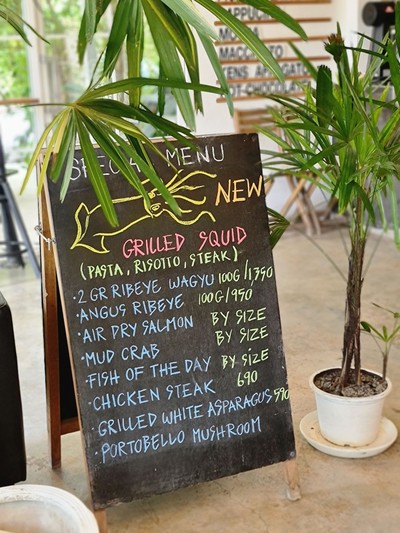 MACCHIATO
SPECIAL MENU
NEW
GRILLED SQUID
(PASTA, RISOTTO, STEAK)
·2 GR RIBEYE WAGYU 100G/1,350
·ANGUS RIBEYE 100G/950
·AIR DRY SALMON BY SIZE
·MUD CRAB BY SIZE
·FISH OF THE DAY BY SIZE
·CHICKEN STEAK 690
·GRILLED WHITE ASPARAGUS 590
·PORTOBELLO MUSHROOM